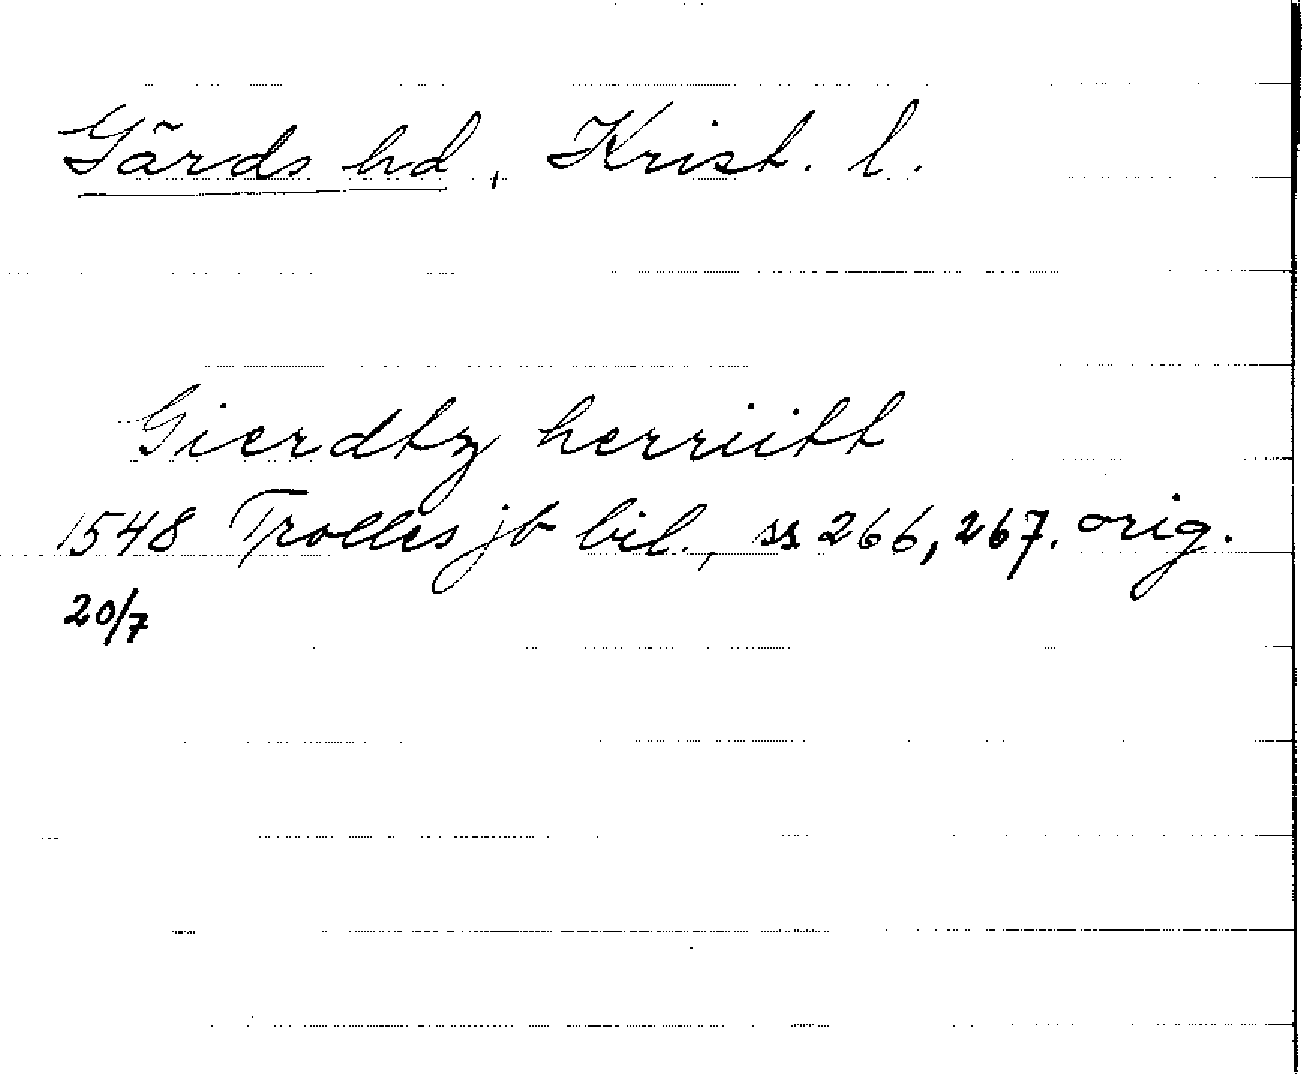 Gärds hd, Krist. l.
Gierdtz herriitt
1548 Trolles jb bil., ss 266, 267. orig.
20/7